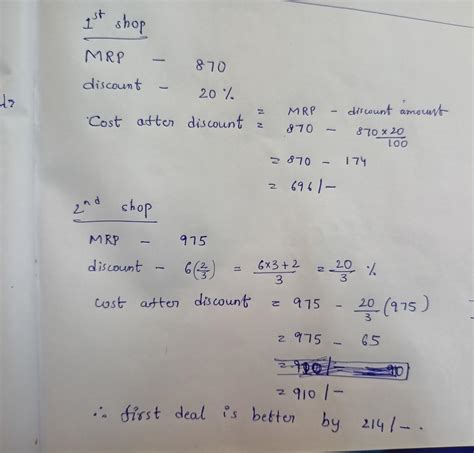 1st shop
MRP - 870
discount - 20 %
= MRP - discount amount
Cost after discount = 870 - 870 × 20 / 100
= 870 - 174
= 696/-
2nd shop
MRP - 975
discount - 6(2/3) = 6×3+2 / 3 = 20/3 %
Cost after discount = 975 - 20/3 (975)
= 975 - 65
= 910/-
∴ first deal is better by 214/-.